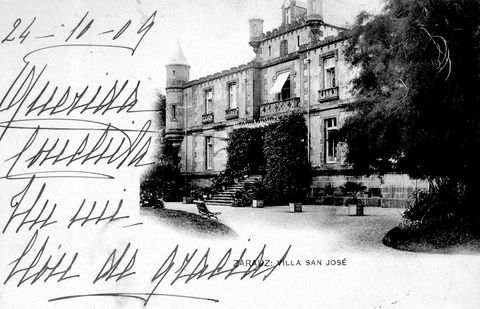 24-10-09
Querida
Conchita
Un mi-
llón de gracias
ZARAUZ: VILLA SAN JOSÉ